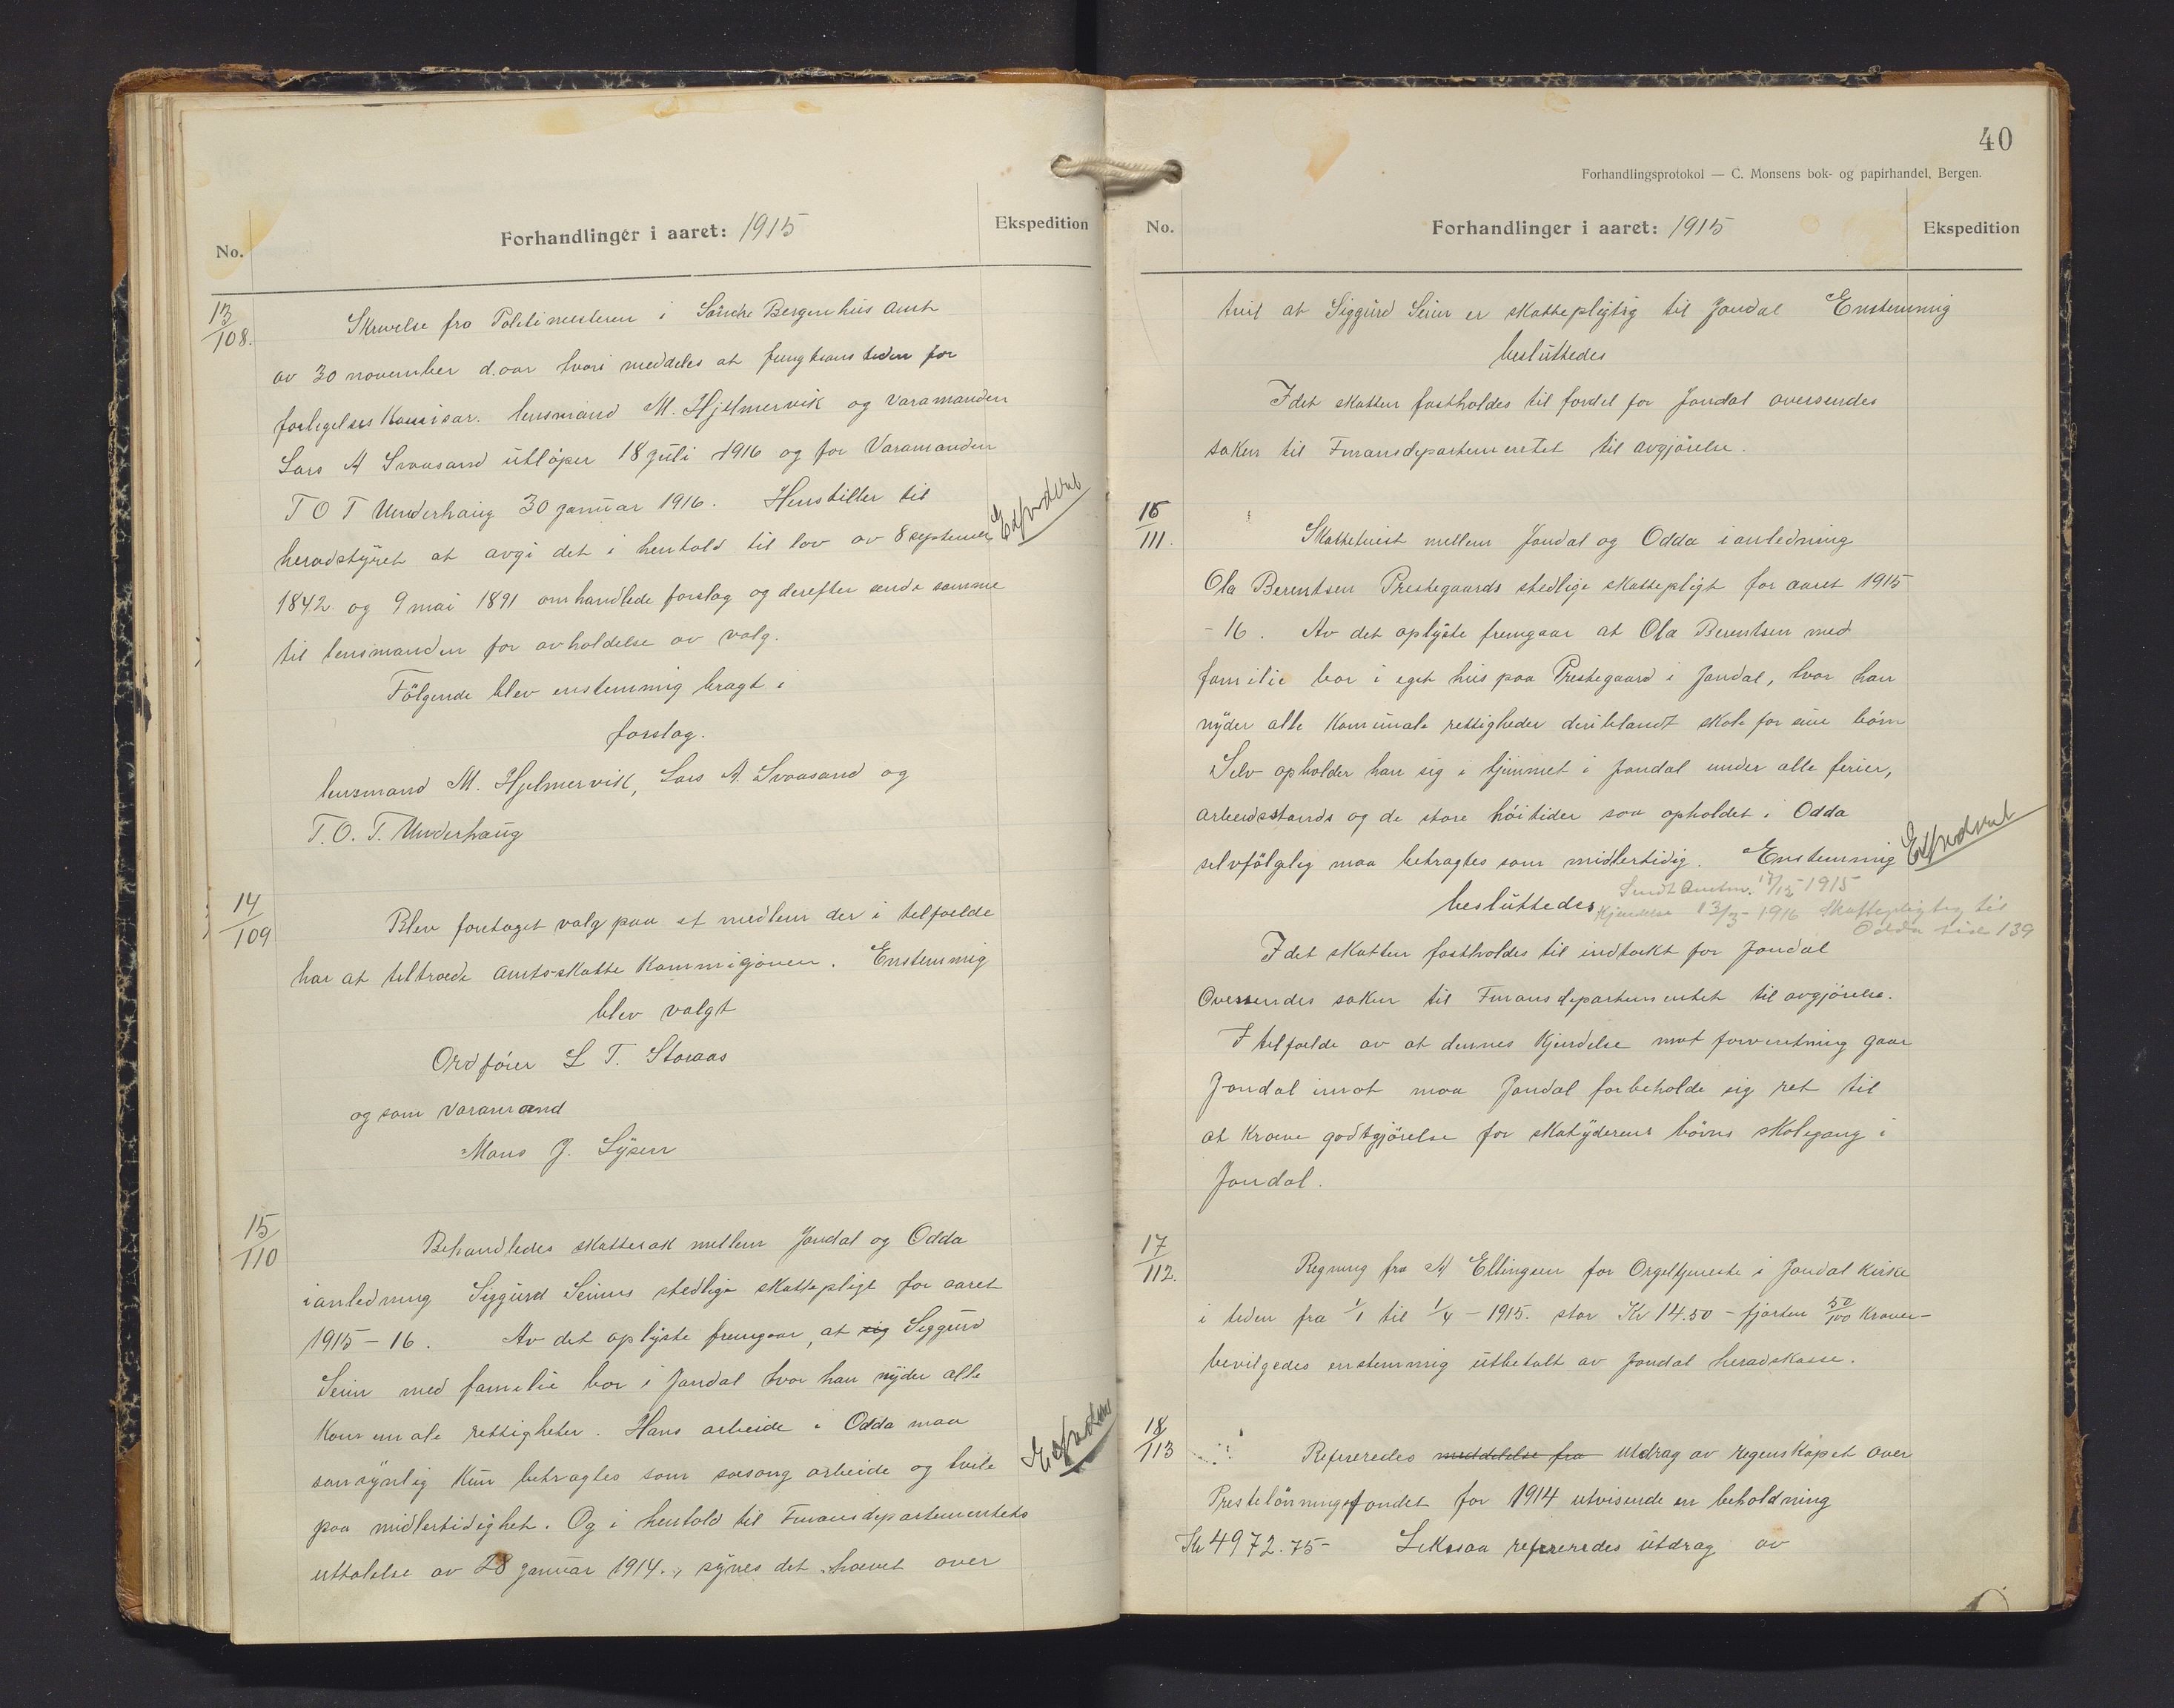 No.
Forhandlinger i aaret: 1915
Ekspedition
13/108.
Skrivelse fra Politimesteren i Söndre Bergenhus amt
av 30 november d.aar hvori meddeles at fungtionstiden for
forligelses Komisar. lensmand M. Hjelmervik og Varamanden
Lars A Svaasand utlöper 18 juli 1916 og for Varamanden
T O T Underhaug 30 januar 1916. Henstiller til
heradstyret at avgi det i henhold til lov av 8 september
Expedert
1842 og 9 mai 1891 omhandlede forslag og derefter sende samme
til lensmanden for avholdelse av valg.
Fölgende blev enstemmig bragt i
forslag.
lensmand M. Hjelmervik, Lars A. Svaasand og
T. O. T. Underhaug
14/109
Blev foretaget valg paa et medlem der i telfælde
har at tiltræde amtsskatte Kommisjonen. Enstemmig
blev valgt
Ordförer L T. Storaas
og som Varamand
Mons J. Lysen
15/110
Behandledes skattesak mellem Jondal og Odda
ianledning Siggurd Seims stedlige skattepligt for aaret
1915-16. Av det oplyste fremgaar, at sig Siggurd
Seim med familie bor i Jondal hvor han nyder alle
Komunale rettigheter. Hans arbeide i Odda maa
sansynlig Kun betragtes som sæsong arbeide og hvile
paa midlertidighet. Og i henhold til Finansdepartementets
uttalelse av 28 januar 1914., synes det hævet over
40
Forhandlingsprotokol — C. Monsens bok- og papirhandel, Bergen.
No.
Forhandlinger i aaret: 1915
Ekspedition
tvil at Siggurd Seim er skattepligtig til Jondal Enstemmig
besluttedes
Idet skatten fastholdes til fordel for Jondal oversendes
saken til Finansdepartementet til avgjörelse.
16/111.
Skattetvist mellem Jondal og Odda ianledning
Ola Berentsen Prestegaards stedlige skattepligt for aaret 1915
- 16. Av det oplyste fremgaar at Ola Berentsen med
familie bor i eget hus paa Prestegaard i Jondal, hvor han
nyder alle Komunale rettigheder deriblandt skole for sine börn
Selv opholder han sig i hjemmet i Jondal under alle ferier,
arbeidsstands og de store höitider saa opholdet i Odda
selvfölgelig maa betragtes som midlertidig. Enstemmig
Expedert
besluttedes
Sendt Amtm. 17/12-1915
Kjendelse 13/3-1916 Skattepligtig til
Odda side 139
Idet skatten fastholdes til indtækt for Jondal
Oversendes saken til Finansdepartementet til avgjörelse.
I telfælde av at dennes Kjendelse mot forventning gaar
Jondal imot maa Jondal forbeholde sig ret til
at Kræve godtgjörelse for skatyderens börns skolegang i
Jondal.
17/112.
Regning fra A Ellingsen for Orgeltjeneste i Jondal Kirke
i tiden fra 1/1 til 1/4 - 1915. stor Kr 14.50 - fjorten 50/100 Kroner-
bevilgedes enstemmig utbetalt av Jondal heradskasse.
18/113
Refereredes meddelelse fra utdrag av regenskapet over
Prestelönningsfondet for 1914 utvisende en beholdning
Kr 4972.75- Likesaa refereredes utdrag av